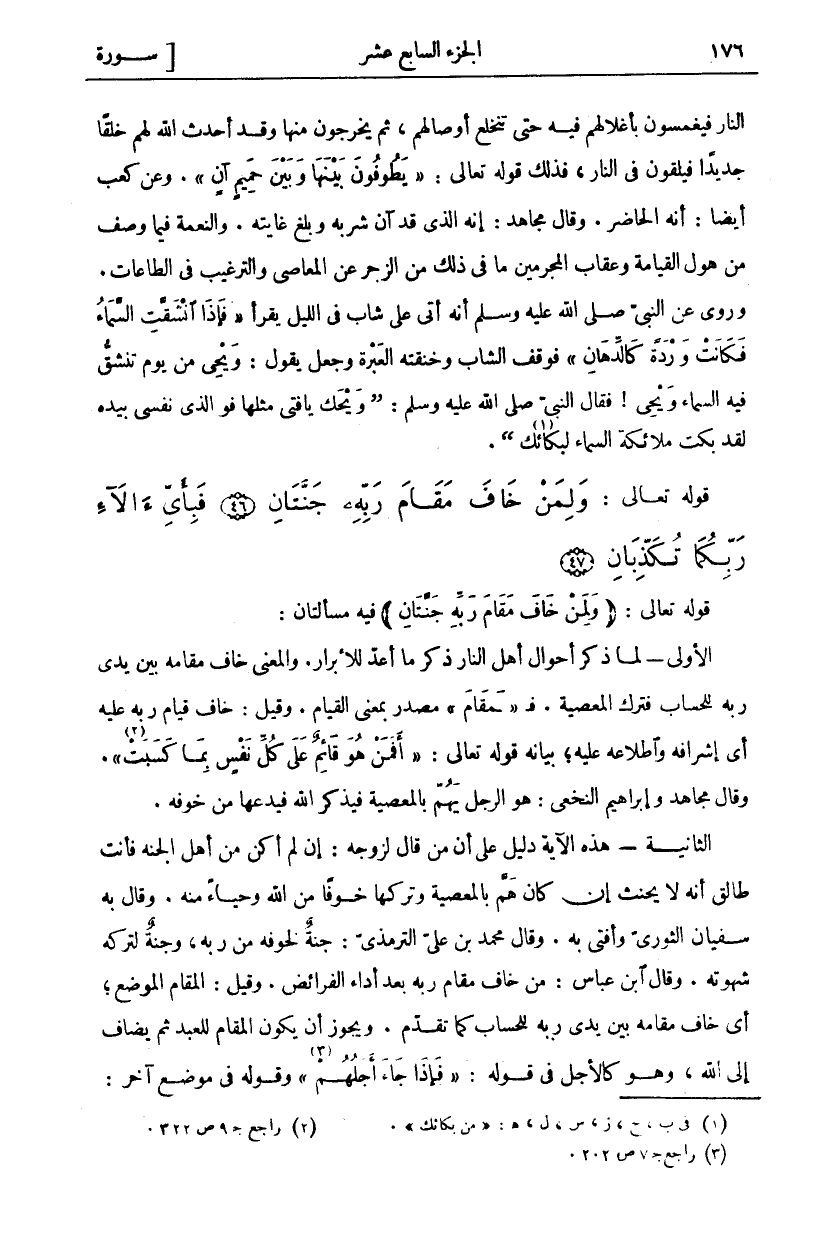 ١٧٦ الجزء السابع عشر [ ســـورة
النار فيغمسون بأغلالهم فيــه حتى تنخلع أوصالهم ، ثم يخرجون منها وقــد أحدث الله لهم خلقًا
جديدًا فيلقون فى النار ، فذلك قوله تعالى : « يَطُوفُونَ بَيْنَهَا وَبَيْنَ حَمِيمٍ آنٍ » . وعن كعب
أيضا : أنه الحاضر . وقال مجاهد : إنه الذى قد آن شربه وبلغ غايته . والنعمة فيما وصف
من هول القيامة وعقاب المجرمين ما فى ذلك من الزجر عن المعاصى والترغيب فى الطاعات .
وروى عن النبىّ صــلى الله عليه وســلم أنه أتى على شاب فى الليل يقرأ « فَإِذَا ٱنْشَقَّتِ السَّمَاءُ
فَكَانَتْ وَرْدَةً كَالدِّهَانِ » فوقف الشاب وخنقته العَبْرة وجعل يقول : وَيْحِى من يوم تنشقُّ
فيه السماء وَيْحِى ! فقال النبىّ صلى الله عليه وسلم : ” وَيْحَك يافتى مثلها فو الذى نفسى بيده
لقد بكت ملائكة السماء لبكائك(١) “ .
قوله تعــالى : وَلِمَنْ خَافَ مَقَــامَ رَبِّهِۦ جَنَّتَانِ ﴿٤٦﴾ فَبِأَىِّ ءَالَآءِ
رَبِّكُمَا تُكَذِّبَانِ ﴿٤٧﴾
قوله تعالى : ﴿ وَلِمَنْ خَافَ مَقَامَ رَبِّهِ جَنَّتَانِ ﴾ فيه مسألتان :
الأولى — لمــا ذكر أحوال أهل النار ذكر ما أعدّ للأبرار. والمعنى خاف مقامه بين يدى
ربه للحساب فترك المعصية . فـ « ـمَقَامَ » مصدر بمعنى القيام . وقيل : خاف قيام ربه عليه
أى إشرافه وٱطلاعه عليه؛ بيانه قوله تعالى : « أَفَمَنْ هُوَ قَائِمٌ عَلَى كُلِّ نَفْسٍ بِمَــا كَسَبَتْ(٢)».
وقال مجاهد وإبراهيم النخعى : هو الرجل يَهُمّ بالمعصية فيذكر الله فيدعها من خوفه .
الثانيـــة — هذه الآية دليل على أن من قال لزوجه : إن لم أكن من أهل الجنه فأنت
طالق أنه لا يحنث إن كان هَمَّ بالمعصية وتركها خــوفًا من الله وحيــاءً منه . وقال به
ســفيان الثورىّ وأفتى به . وقال محمد بن علىّ الترمذىّ : جنةٌ لخوفه من ربه ، وجنةٌ لتركه
شهوته . وقال ٱبن عباس : من خاف مقام ربه بعد أداء الفرائض . وقيل : المقام الموضع؛
أى خاف مقامه بين يدى ربه للحساب كما تقــدّم . ويجوز أن يكون المقام للعبد ثم يضاف
إلى الله ، وهــو كالأجل فى قــوله : « فَإِذَا جَاءَ أَجَلُهُــمْ(٣) » وقوله فى موضــع آخر :
(١) فى ب ، ح ، ز ، س ، ل ، ه : « من بكائك » . (٢) راجع جـ ٩ ص ٣٢٢ .
(٣) راجع جـ ٧ ص ٢٠٢ .